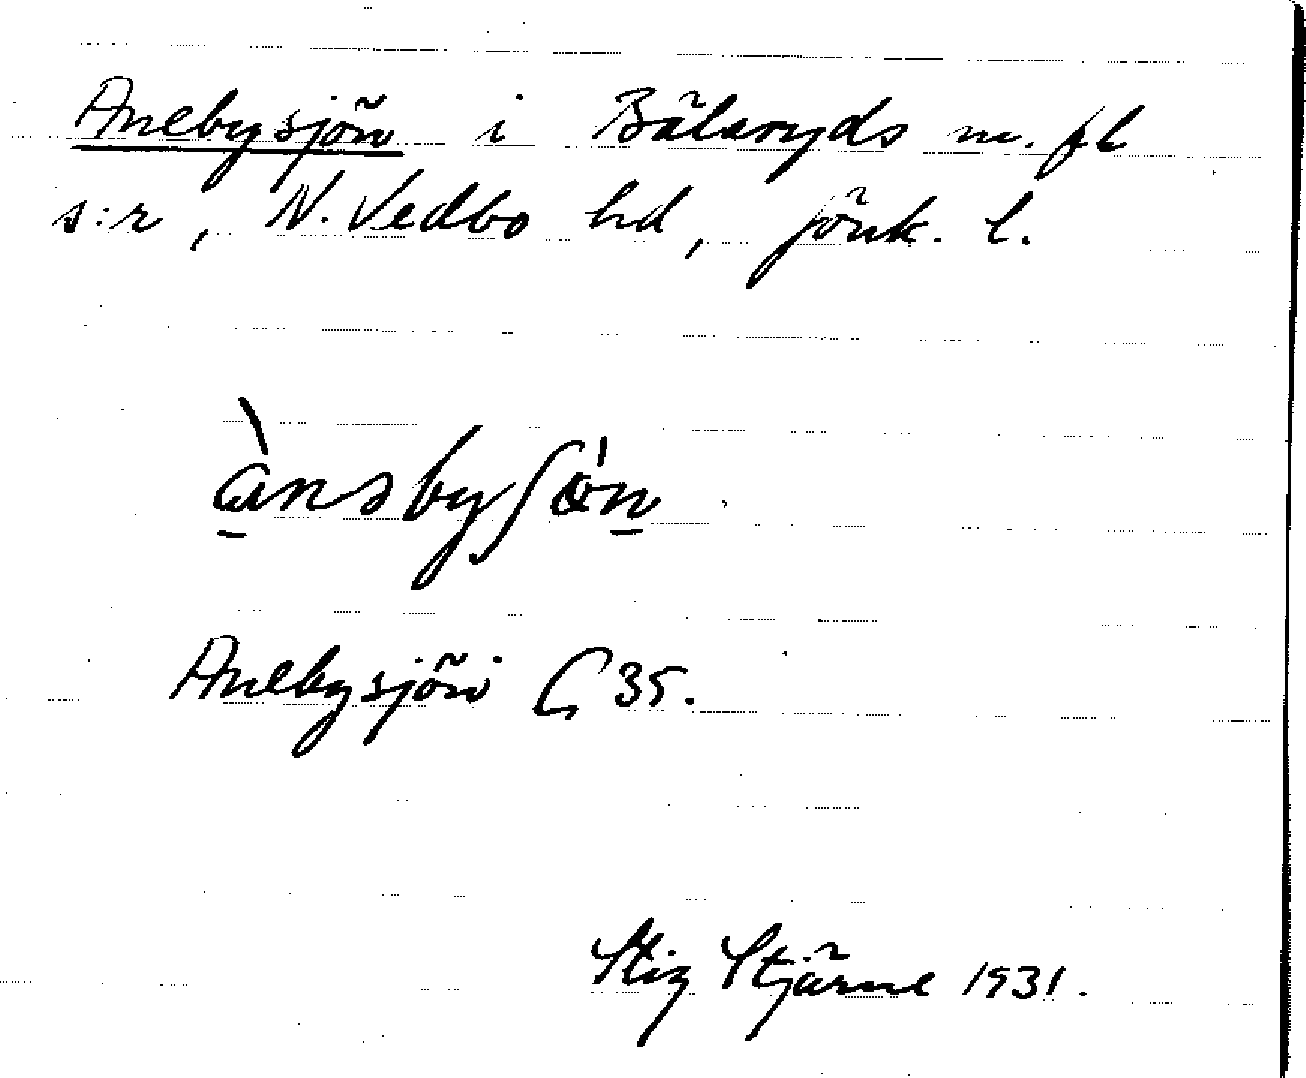 Anebysjön i Bälaryds m. fl
s:r, N. Vedbo hd, Jönk. l.
ànəbyʃœ̀n
Anebysjön G 35.
Stig Stjärne 1931.